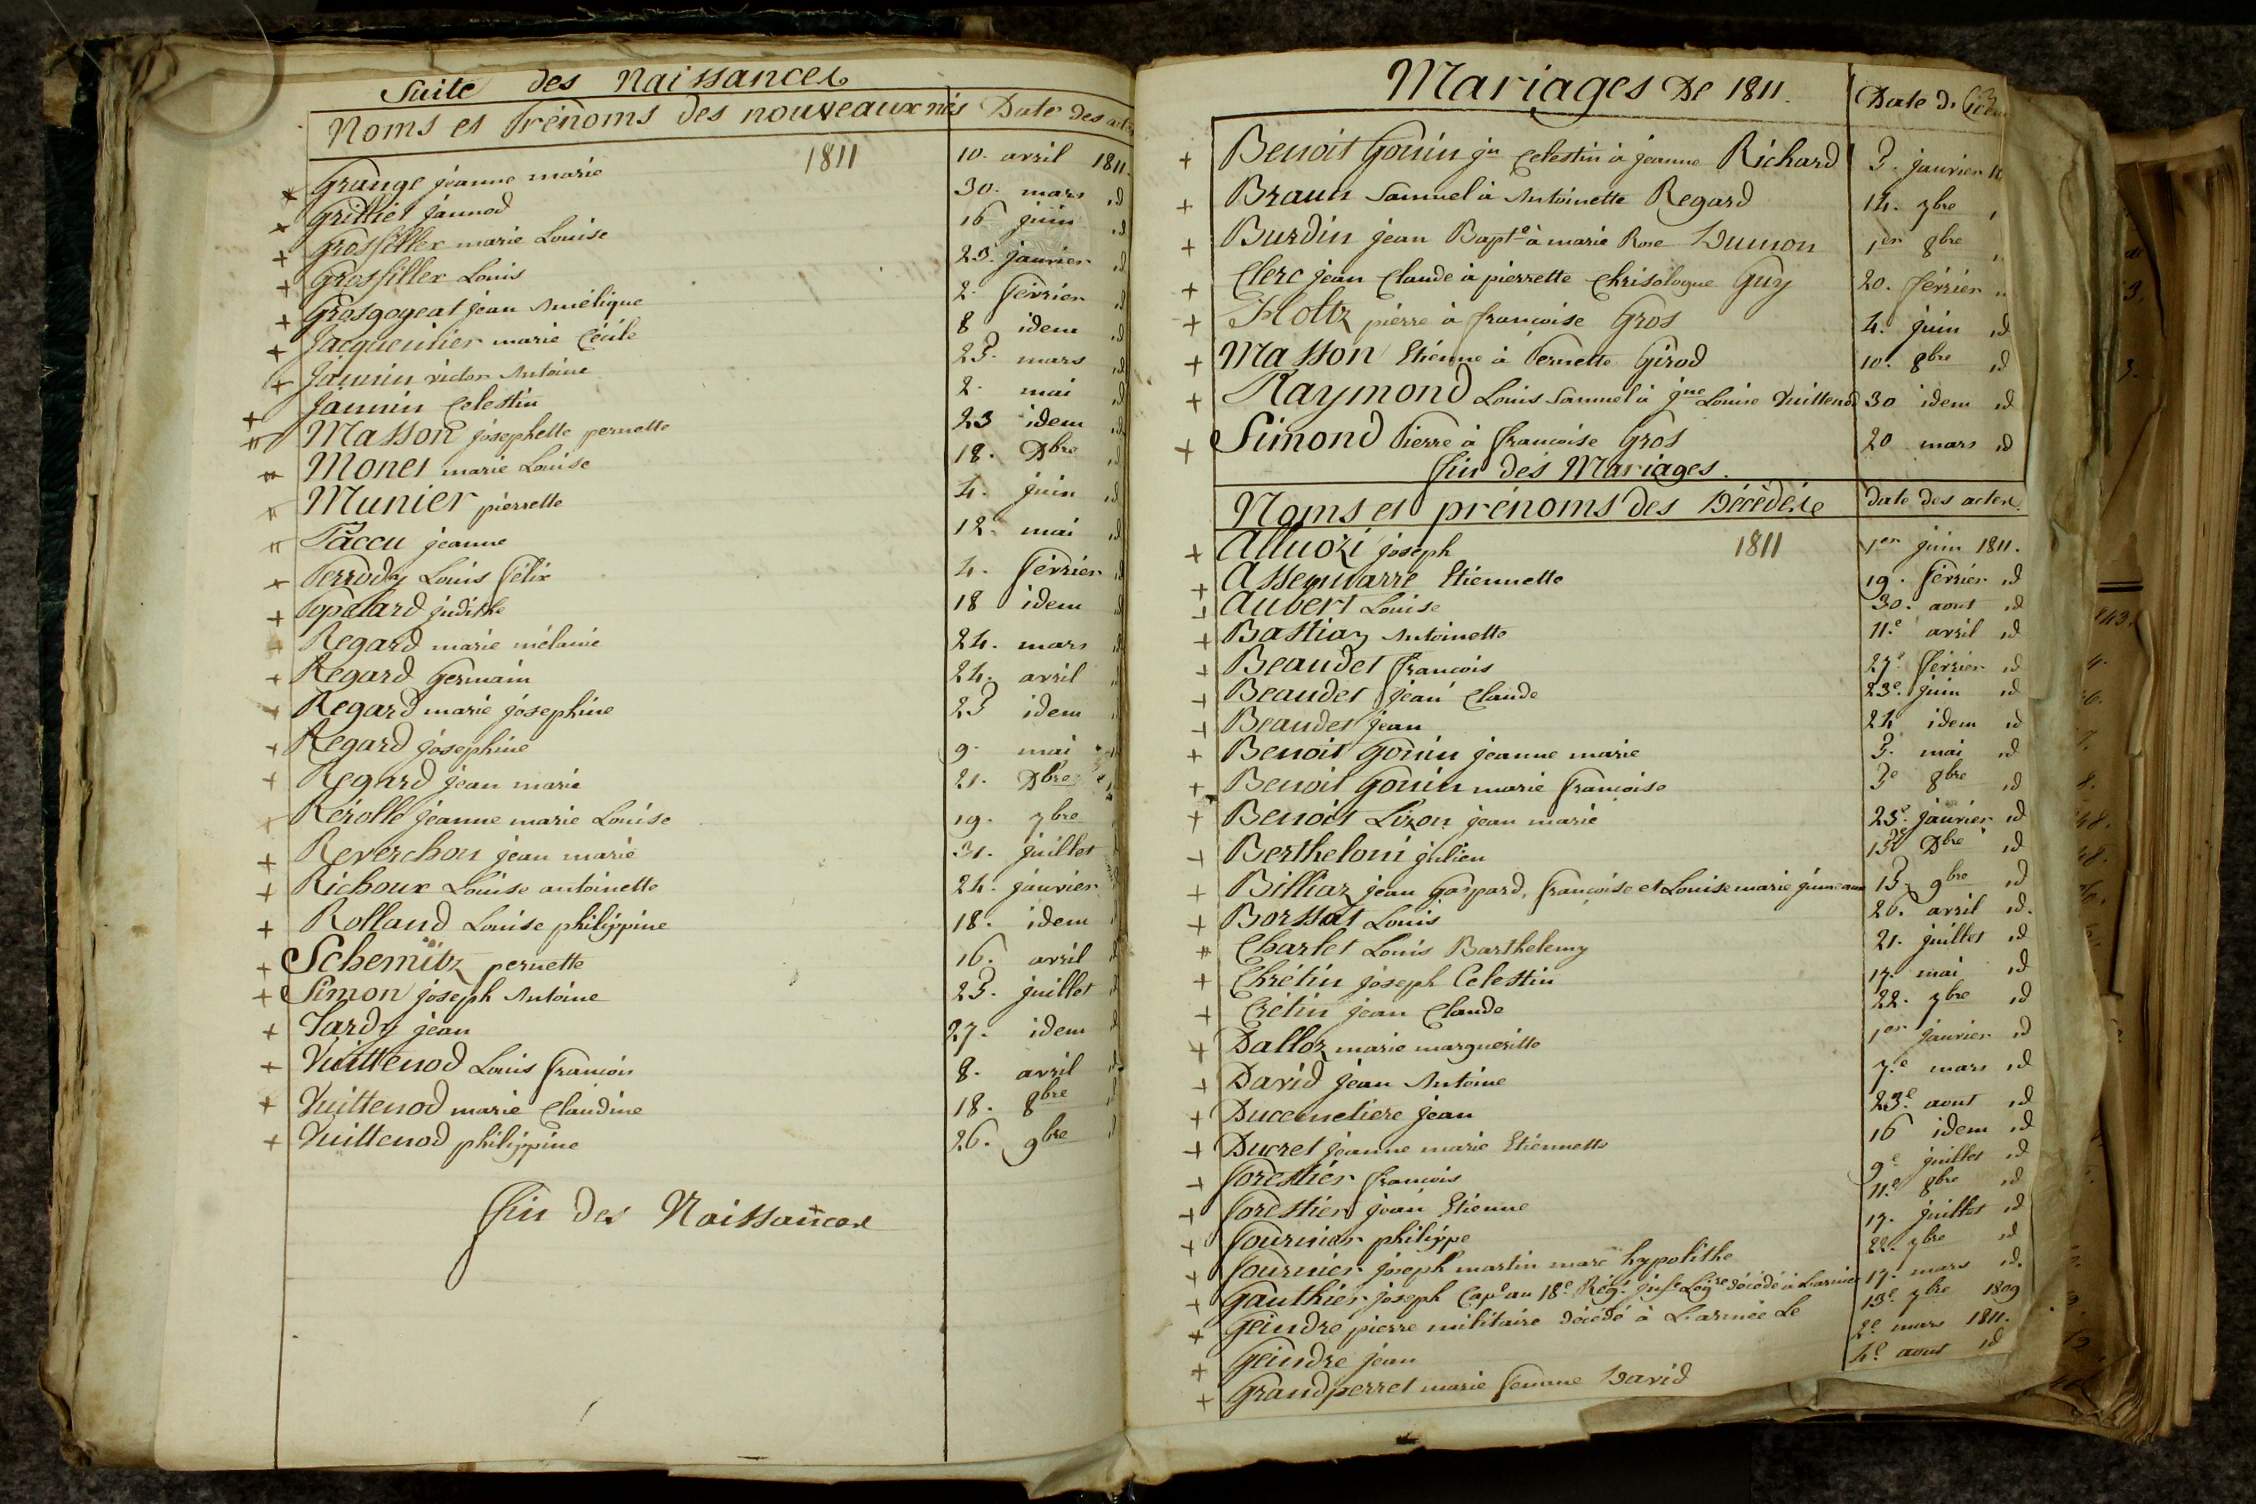 Suite des Naissances
Noms et Prénoms des nouveaux nés Date des actes
1811
Grange jeanne marie 10. avril 1811.
Grillet jannod 30. mars id
Grosfiller marie Louise 16 juin id
Grosfiller Louis 23. janvier id
Grosgogeat jean Amélique 2. février id
Jacquemier marie Cécile 8 idem id
Jannin victor Antoine 23. mars id
Jannin Celestin 2. mai id
Masson josephette pernette 23 idem id
Monet marie Louise 18. Dbre id
Munier pierrette 4. juin id
Paccu jeanne 12. mai id
Perrody Louis félix 4. février id
Popelard judithe 18 idem id
Regard marie mélanie 24. mars id
Regard Germain 24. avril
Regard marie joséphine 23 idem
Regard joséphine 9. mai
Regard jean marie 21. Dbre
Rérolle jeanne marie Louise 19. 7bre
Reverchon jean marie 31. juillet
Richoux Louise antoinette 24. janvier
Rolland Louise philippine 18. idem
Schemitz pernette 16. avril
Simon joseph Antoine 23. juillet
Tardy jean 27. idem
Vuittenod Louis françois 8. avril
Vuittenod marie Claudine 18. 8bre
Vuittenod philippine 26. 9bre
fin des Naissances
Mariages De 1811. Date d.
Benoit Gonin jn Celestin à jeanne Richard 3. janvier
Braun Samuel à Antoinette Regard 14. 7bre
Burdin jean Bapte à marie Rose Dumon 1er 8bre
Clerc jean Claude à pierrette Chrisologue Guy 20. février
Holtz pierre à françoise Gros 4. juin id
Masson Etienne à Pernette Girod 10. 8bre id
Raymond Louis Samuel à jne Louise Vuittenod 30 idem id
Simond Pierre à françoise Gros 20 mars id
fin des Mariages.
Noms et prénoms des Décédés Date des actes.
Alluozi joseph 1811 1er juin 1811.
Assemarre Etiennette 19. février id
Aubert Louise 30. aout id
Bastian Antoinette 11.e avril id
Beaudet françois 27.e février id
Beaudet jean Claude 23e. juin id
Beaudet jean 24 idem id
Benoit Gonin jeanne marie 3. mai id
Benoit Gonin marie françoise 3e 8bre id
Benoit Lizon jean marie 25e. janvier id
Bertheloni julien 13e Dbre id
Billiaz jean Gaspard, françoise et Louise marie jumeaux 13. 9bre id
Borssat Louis 20. avril id.
Charlet Louis Barthelemy 21. juillet id
Chrétin joseph Celestin 17. mai id
Crétin jean Claude 22. 7bre id
Dalloz marie margueritte 1er janvier id
David jean Antoine 7.e mars id
Ducemetiere jean 23e. aout id
Ducret jeanne marie Etiennette 16 idem id
forestier françois 9.e juillet id
forestier jean Etienne 11.e 8bre id
fournier philippe 17. juillet id
fournier joseph martin marc hypolithe 22. 7bre id
Gauthier joseph Cape au 18e. Régt. jnfe Légre décédé à L'armée 17. mars id.
Geindre pierre militaire décédé à L'armée Le 13e 7bre 1809
Geindre jean 2e mars 1811.
Grandperret marie femme David 4e. aout id